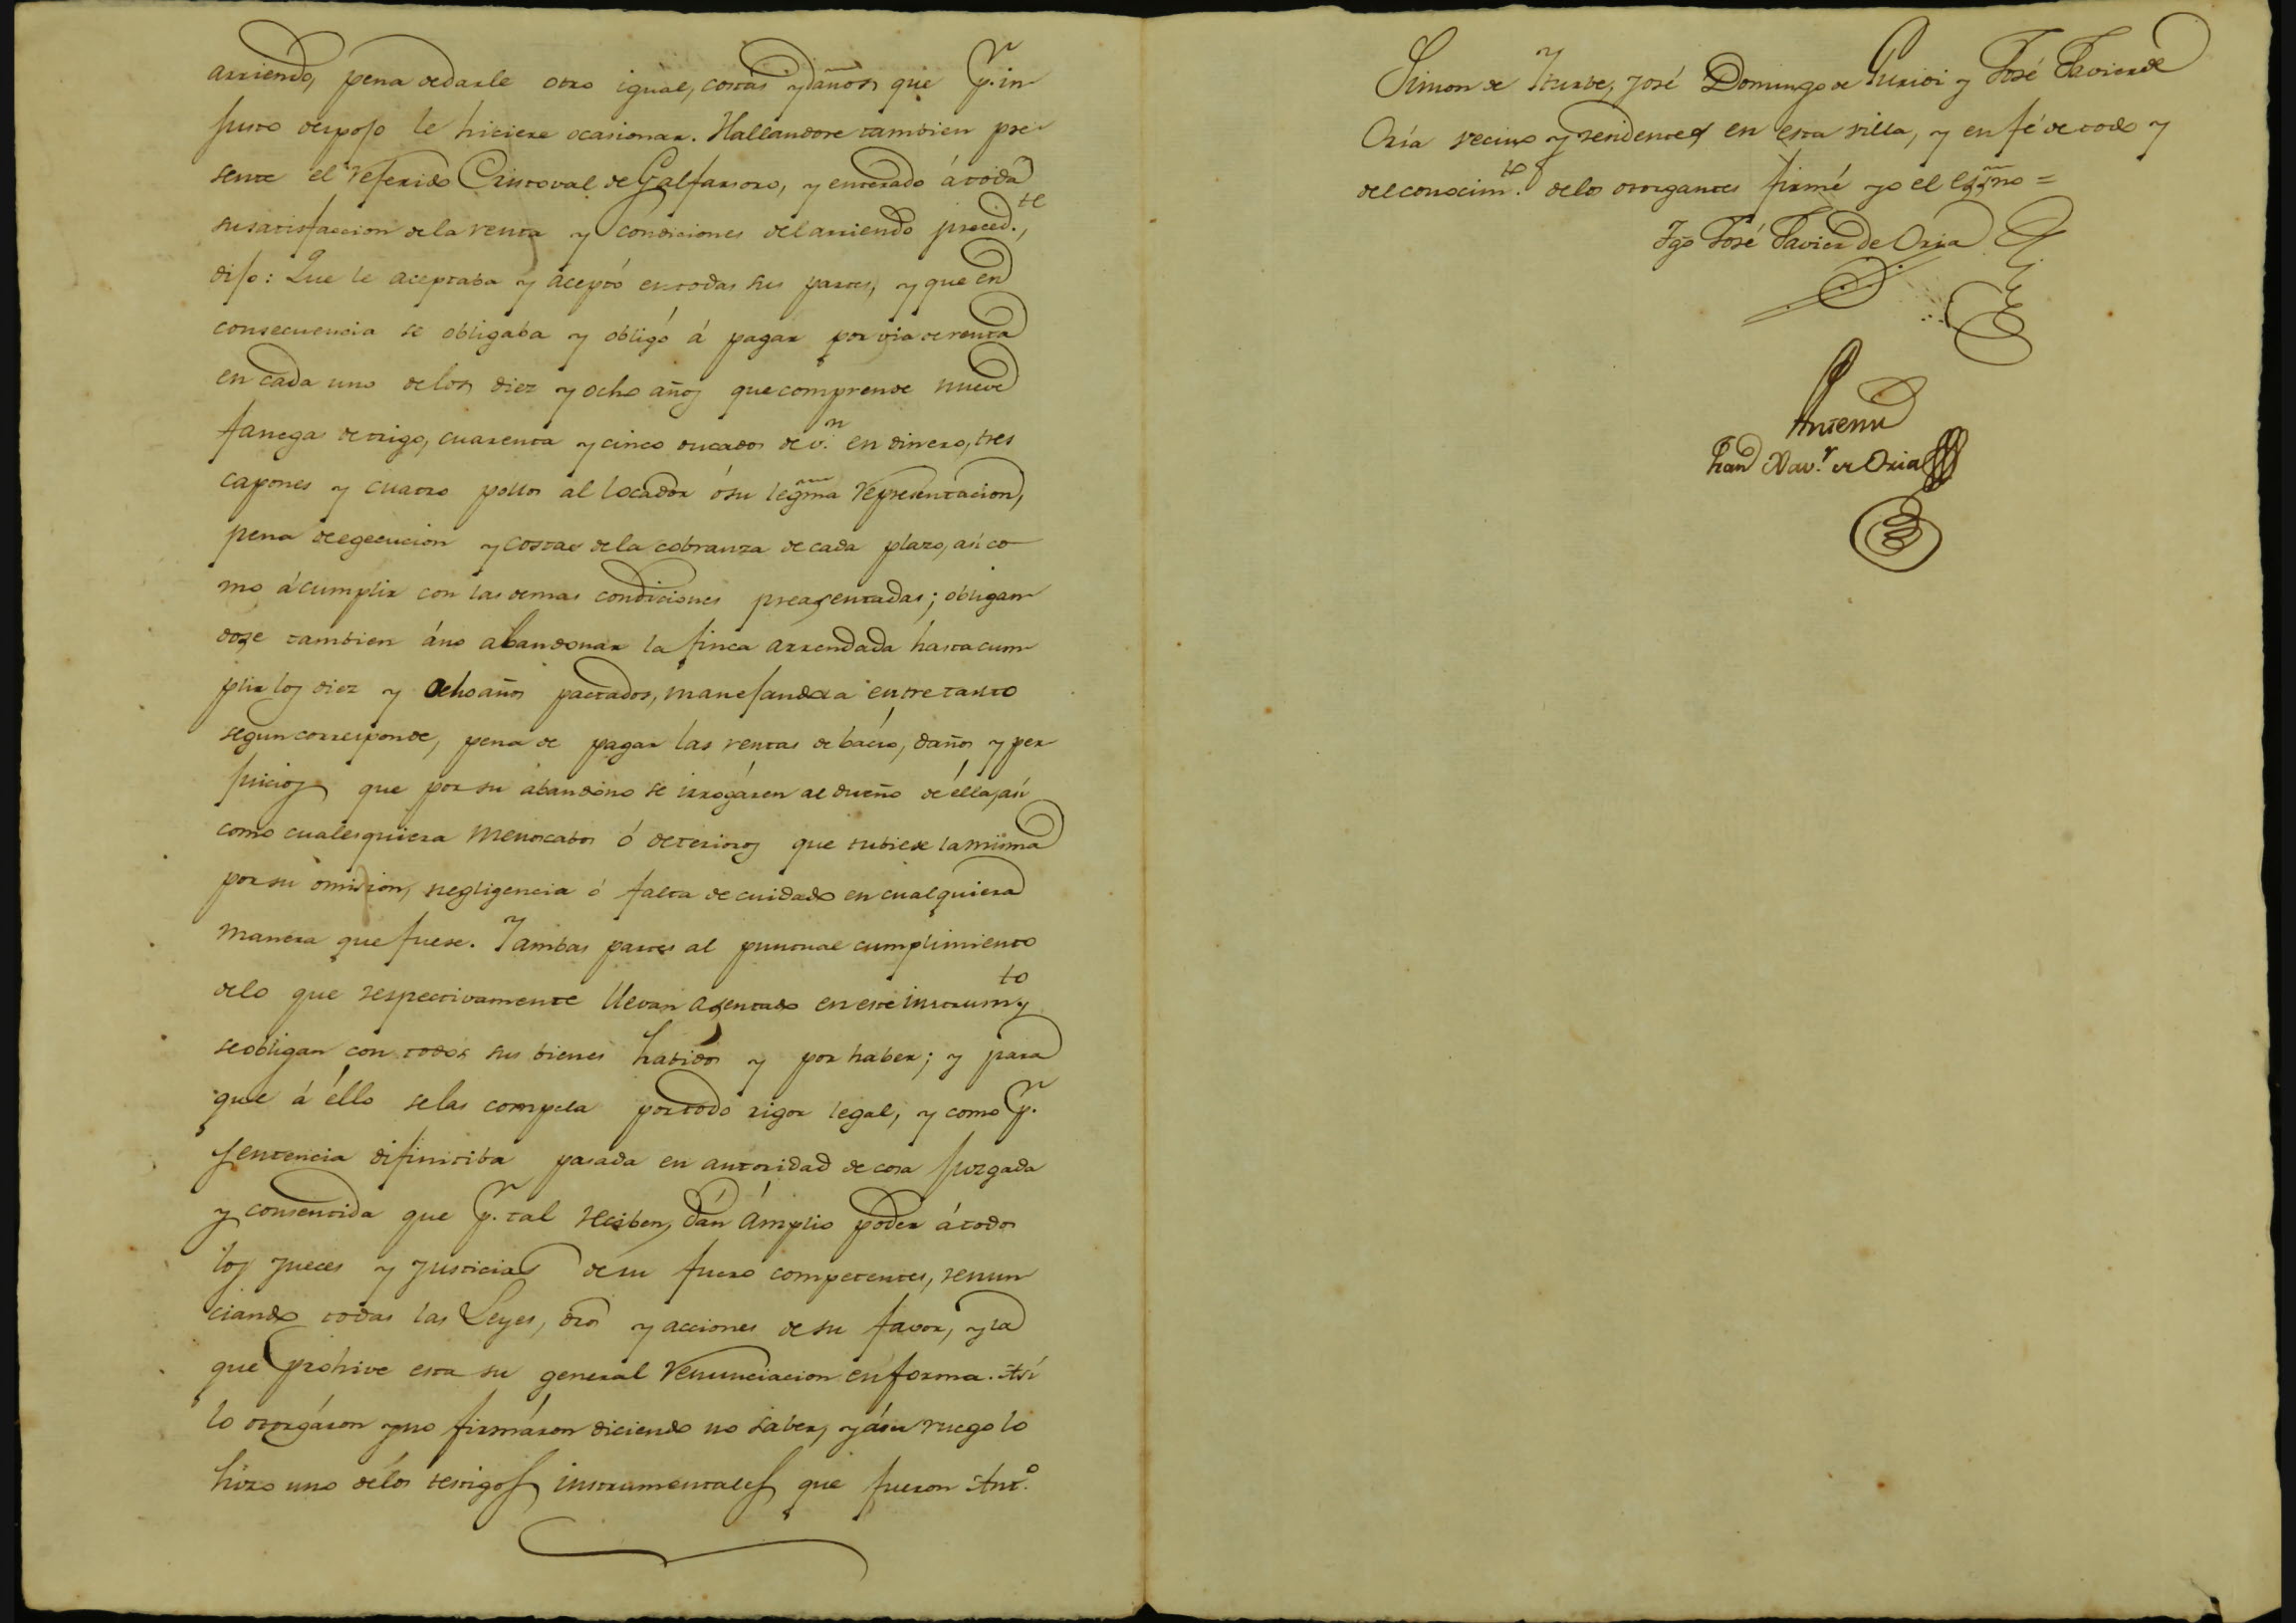 arriendo, pena de darle otro igual, costas y daños que p.r in-
justo despojo le hiciere ocasionar. Hallandose tambien pre-
sente el referido Cristoval de Galfarsoro, y enterado á toda
su satisfaccion de la renta y condiciones del arriendo preced.te,
dijo: Que le aceptaba y aceptó en todas sus partes, y que en
consecuencia se obligaba y obligó á pagar por via de renta
en cada uno de los diez y ocho años que comprende nueve
fanegas de trigo, cuarenta y cinco ducados de v.n en dinero, tres
capones y cuatro pollos al locador ó su legma representacion,
pena de egecucion y costas de la cobranza de cada plazo, asi co-
mo á cumplir con las demas condiciones preasentadas; obligan-
dose tambien á no abandonar la finca arrendada hasta cum-
plir los diez y ocho años pactados, manejandola entretanto
segun corresponde, pena de pagar las rentas de bacío, daños y per
juicios que por su abandono se irrogáren al dueño de élla, asi
como cualesquiera menoscabos ó deterioros que tubiese la misma
por su omision, negligencia ó falta de cuidado en cualquiera
manera que fuese. Y ambas partes al puntual cumplimiento
de lo que respectivamente llevan asentado en este instrum.to
se obligan con todos sus bienes habidos y por haber; y para
que á éllo se las compela por todo rigor legal, y como p.r
sentencia difinitiba pasada en autoridad de cosa juzgada
y consentida que p.r tal reciben, dán ámplio poder á todos
los jueces y justicias de su fuero competentes, renun-
ciando todas las Leyes, dros y acciones de su favor, y la
que prohive esta su general renunciacion en forma. Así
lo otorgáron y no firmáron diciendo no saber, y á su ruego lo
hizo uno de los testigos instrumentales que fueron Ant.o
Simon de Yturbe, José Domingo de Yurioi y José Javier de
Oria vecinos y residentes en esta villa, y en fé de todo y
del conocim.to de los otorgantes firmé yo el Essno =
Tgo José Javier de Oria
Antemi
Xav.r de Oria